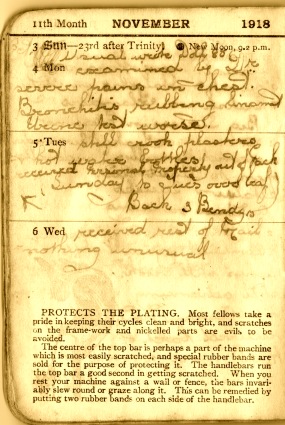 11th Month NOVEMBER 1918
3 Sun—23rd after Trinity. New Moon, 9.2 p.m.
Usual work
4 Mon examined by Dr
severe pains in chest.
Bronchitis rubbing linament
worse.
5 Tues still crook plasters
hot water bottles
received personal property out of Pack
Sunday overleaf
Back 3 Bendigo
6 Wed received rest of mail
nothing unusual
PROTECTS THE PLATING. Most fellows take a
pride in keeping their cycles clean and bright, and scratches
on the frame-work and nickelled parts are evils to be
avoided.
The centre of the top bar is perhaps a part of the machine
which is most easily scratched, and special rubber bands are
sold for the purpose of protecting it. The handlebars run
the top bar a good second in getting scratched. When you
rest your machine against a wall or fence, the bars invari-
ably slew round or graze along it. This can be remedied by
putting two rubber bands on each side of the handlebar.